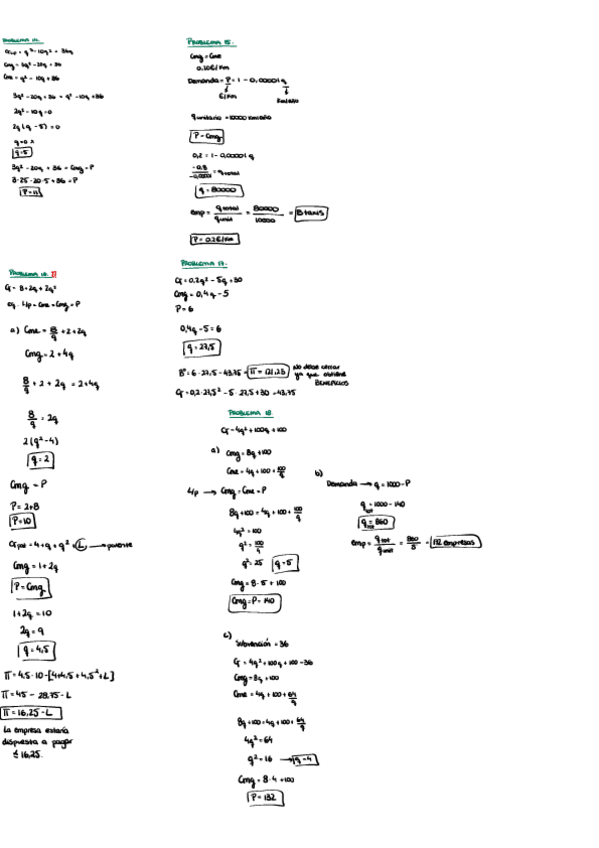 PROBLEMA 14.
CTLP = q³ - 10q² + 36q
Cmg = 3q² - 20q + 36
Cme = q² - 10q + 36
3q² - 20q + 36 = q² - 10q + 36
2q² - 10q = 0
2q (q - 5) = 0
q=0 x
q=5
3q² - 20q + 36 = Cmg = P
3·25 - 20·5 + 36 = P
P=11
PROBLEMA 15.
Cmg = Cme
0.20€/km
Demanda = P = 1 - 0,00001 q
€/km
km/año
q unitario = 10000 km/año
P = Cmg
0,2 = 1 - 0,00001 q
-0,8 / -0,00001 = q total
q = 80000
emp = q total / q unit = 80000 / 10000 = 8 taxis
P = 0.2€/km
PROBLEMA 16.
CT = 8 + 2q + 2q²
eq. L/p → Cme = Cmg = P
a) Cme = 8/q + 2 + 2q
Cmg = 2 + 4q
8/q + 2 + 2q = 2 + 4q
8/q = 2q
2 (q² - 4)
q = 2
Cmg = P
P = 2+8
P=10
CT pat = 4 + q + q² + L → patente
Cmg = 1 + 2q
P = Cmg
1 + 2q = 10
2q = 9
q = 4,5
π = 4,5·10 - [4+4,5 + 4,5² + L]
π = 45 - 28,75 - L
π = 16,25 - L
La empresa estaría
dispuesta a pagar
≤ 16,25.
PROBLEMA 17.
CT = 0,2q² - 5q + 30
Cmg = 0,4q - 5
P = 6
0,4q - 5 = 6
q = 27,5
Bº = 6·27,5 - 43.75 = π = 121,25 No debe cerrar
ya que obtiene
BENEFICIOS
CT = 0,2·27,5² - 5·27,5 + 30 = 43,75
PROBLEMA 18.
CT = 4q² + 100q + 100
a) Cmg = 8q + 100
Cme = 4q + 100 + 100/q
L/p → Cmg = Cme = P
8q + 100 = 4q + 100 + 100/q
4q² = 100
q² = 100/4
q² = 25 q = 5
Cmg = 8·5 + 100
Cmg = P = 140
b)
Demanda → q = 1000 - P
q tot = 1000 - 140
q tot = 860
emp = q tot / q unit = 860 / 5 = 172 empresas
c)
Subvención = 36
CT = 4q² + 100q + 100 - 36
Cmg = 8q + 100
Cme = 4q + 100 + 64/q
8q + 100 = 4q + 100 + 64/q
4q² = 64
q² = 16 → q = 4
Cmg = 8·4 + 100
P = 132